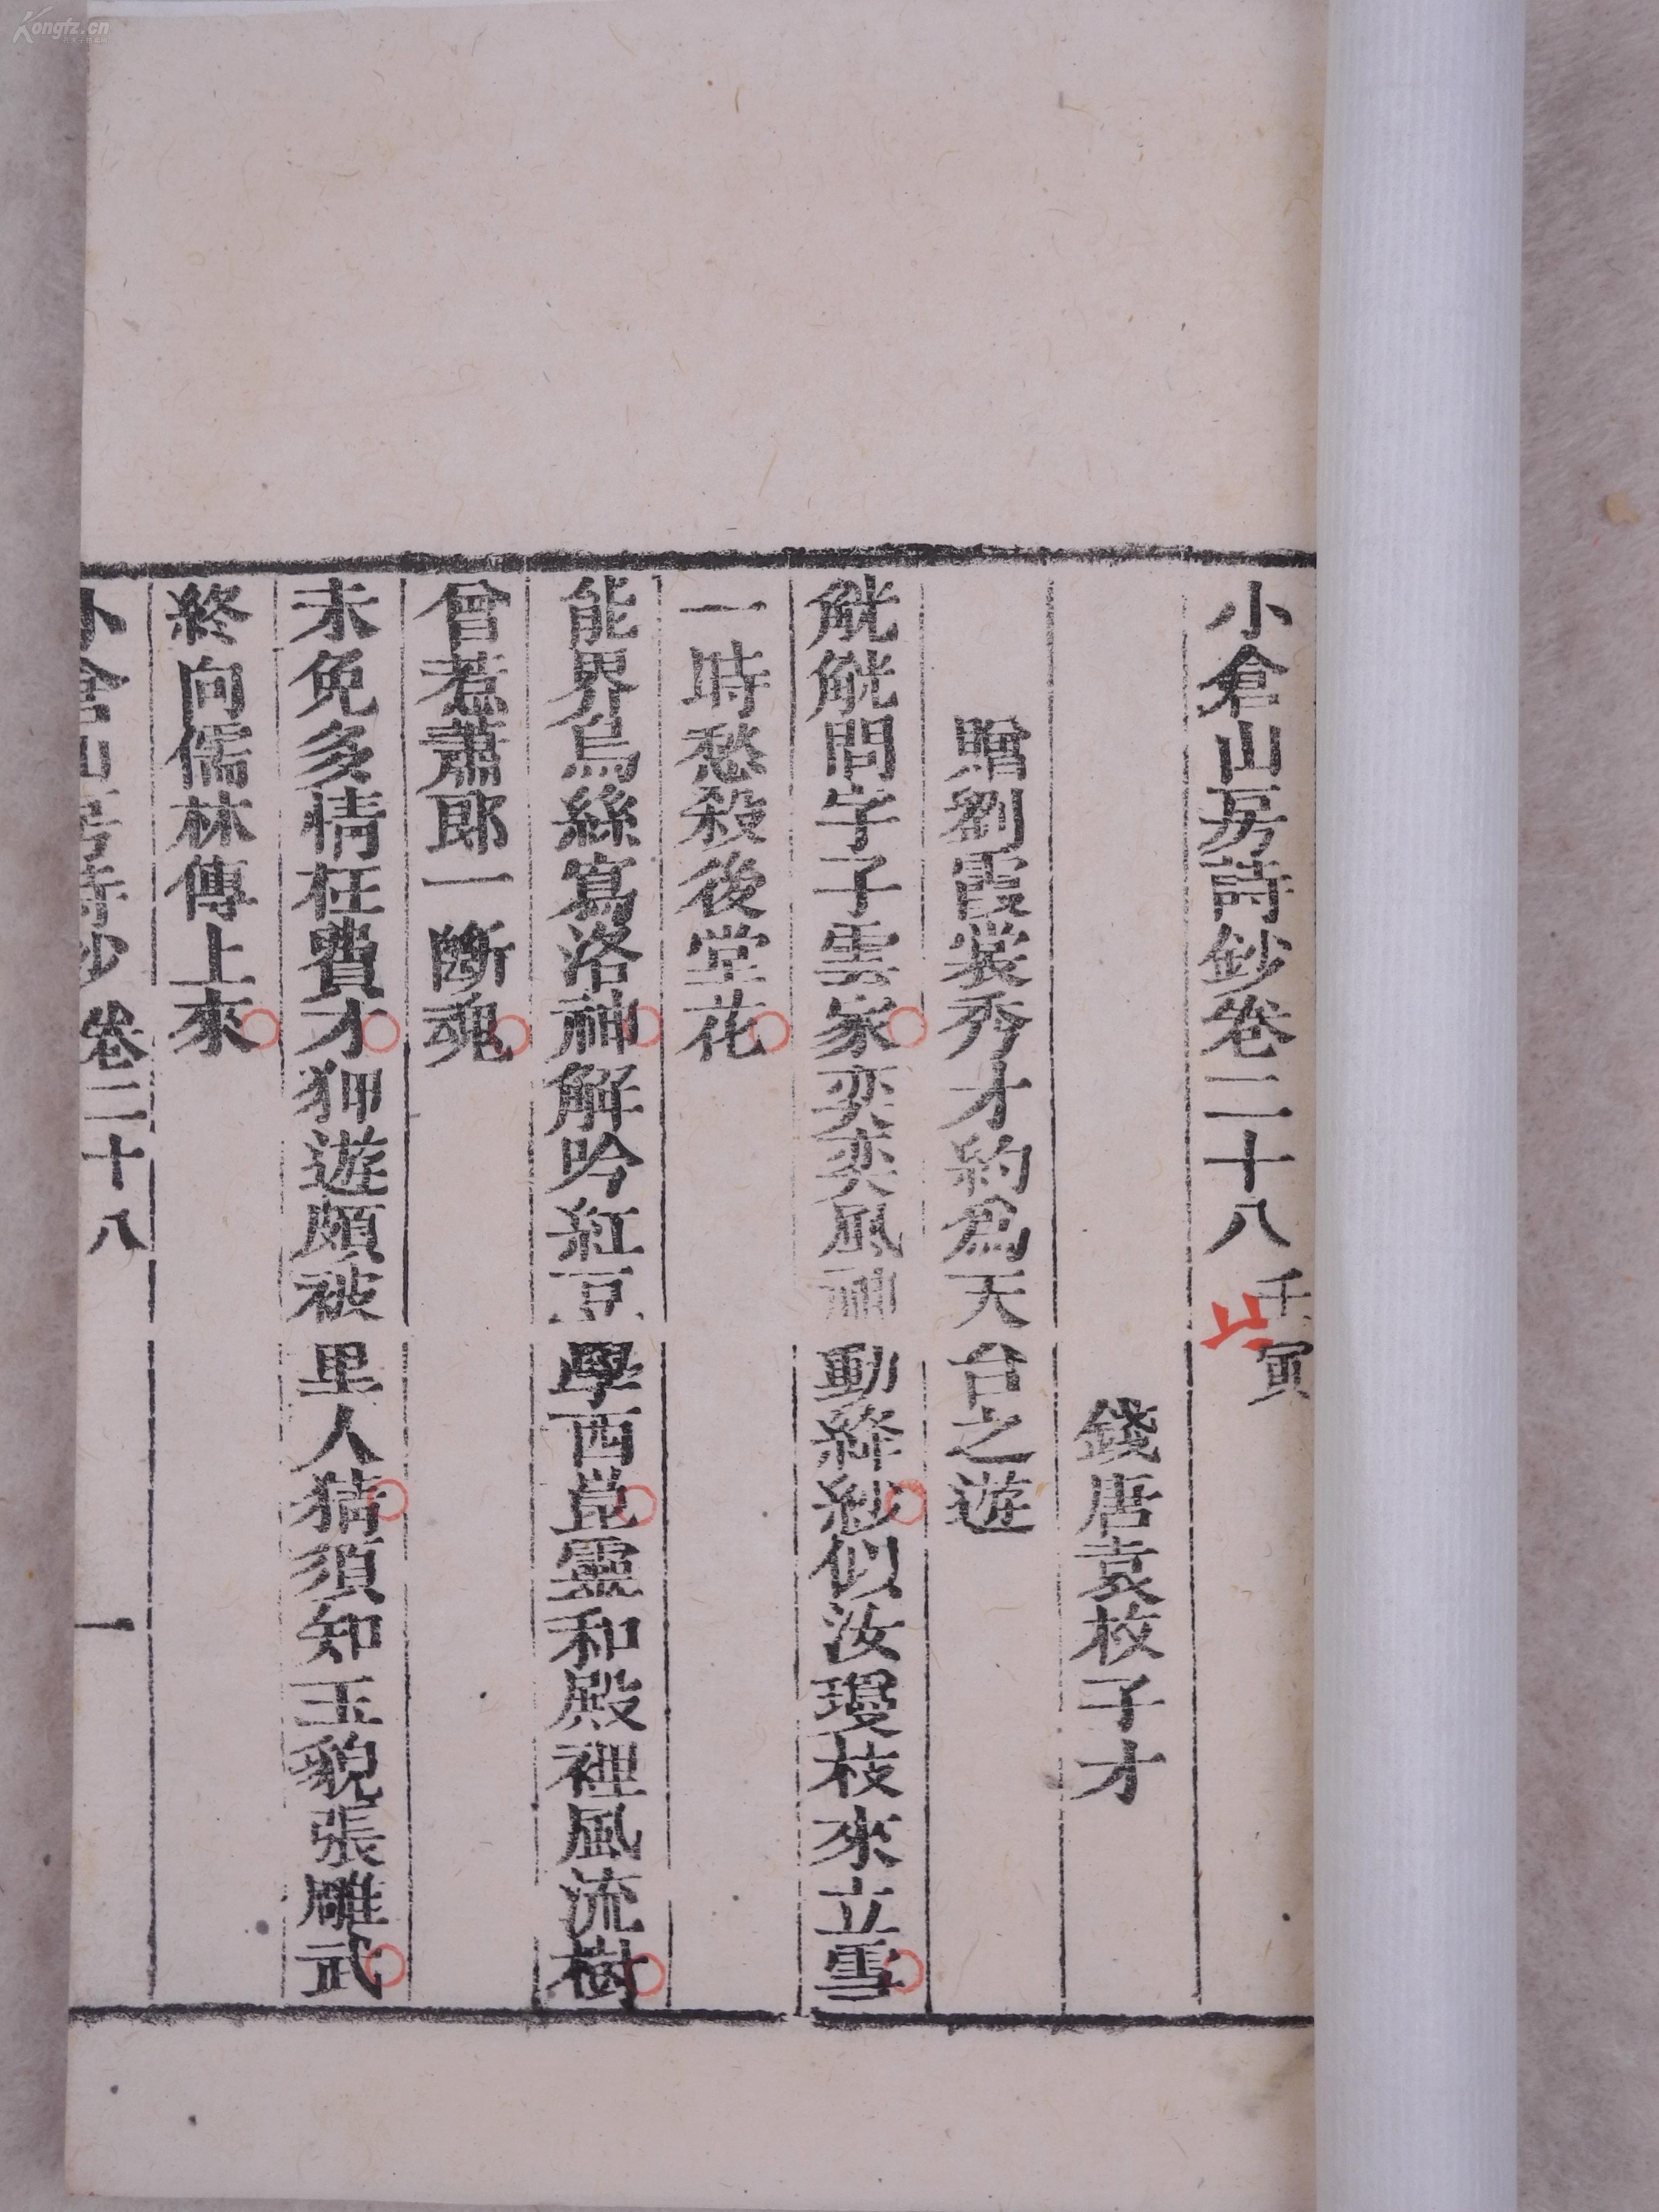 小倉山房詩鈔卷二十八 壬寅
錢唐袁枚子才
贈劉霞裳秀才約爲天台之遊
觥觥問字子雲家奕奕風神動絳紗似汝瓊枝來立雪
一時愁殺後堂花
能界烏絲寫洛神解吟紅豆學西崑靈和殿裡風流樹
曾惹蕭郎一斷魂
未免多情枉費才狎遊頗被里人猜須知玉貌張雕武
終向儒林傳上來
小倉山房詩鈔 卷二十八 一
Kongfz.cn